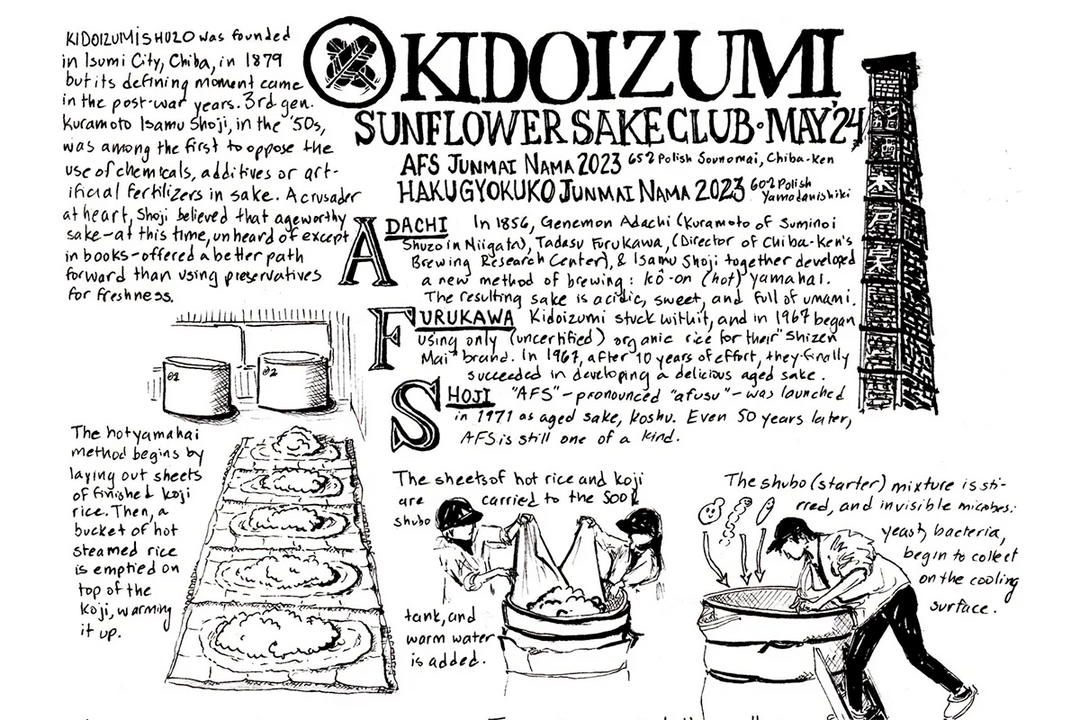 KIDOIZUMI SHUZO was founded
in Isumi City, Chiba, in 1879
but its defining moment came
in the post-war years. 3rd gen.
Kuramoto Isamu Shoji, in the '50s,
was among the first to oppose the
use of chemicals, additives or art-
ificial fertilizers in sake. A crusader
at heart, Shoji believed that ageworthy
sake-at this time, unheard of except
in books-offered a better path
forward than using preservatives
for freshness.
KIDOIZUMI
SUNFLOWER SAKE CLUB · MAY '24
AFS JUNMAI NAMA 2023 65% Polish Sounomai, Chiba-ken
HAKUGYOKUKO JUNMAI NAMA 2023 60% Polish
Yamadanishiki
ADACHI In 1856, Genemon Adachi (Kuramoto of Suminoi
Shuzo in Niigata), Tadasu Furukawa, (Director of Chiba-Ken's
Brewing Research Center), & Isamu Shoji together developed
a new method of brewing: kô-on (hot) yamahai.
The resulting sake is acidic, sweet, and full of umami.
FURUKAWA Kidoizumi stuck with it, and in 1967 began
using only (uncertified) organic rice for their "Shizen
Mai" brand. In 1967, after 10 years of effort, they finally
succeeded in developing a delicious aged sake.
SHOJI "AFS"-pronounced "afusu"-was launched
in 1971 as aged sake, koshu. Even 50 years later,
AFS is still one of a kind.
#1
#2
The hot yamahai
method begins by
laying out sheets
of finished koji
rice. Then, a
bucket of hot
steamed rice
is emptied on
top of the
koji, warming
it up.
The sheets of hot rice and koji
are carried to the 500 l
shubo
tank, and
warm water
is added.
The shubo (starter) mixture is sti-
rred, and invisible microbes:
yeast, bacteria,
begin to collect
on the cooling
surface.